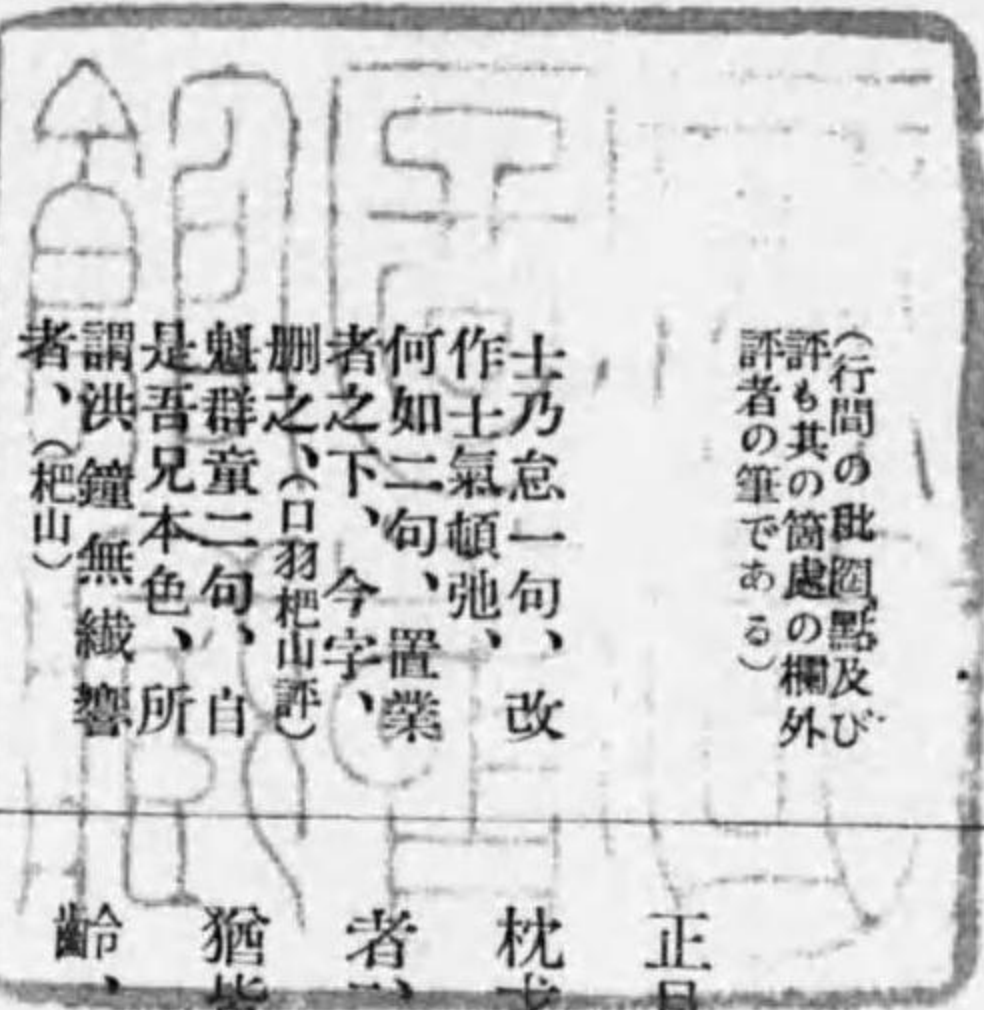 (行間の批圈點及び
評も其の箇處の欄外
評者の筆である)
士乃怠一句、改
作士氣頓弛、
何如二句、置業
者之下、今字、
刪之、(口羽杷山評)
魁群童二句、自
是吾兄本色、所
謂洪鐘無纎響
者、(杷山)
正
枕
者、
猶
齡、